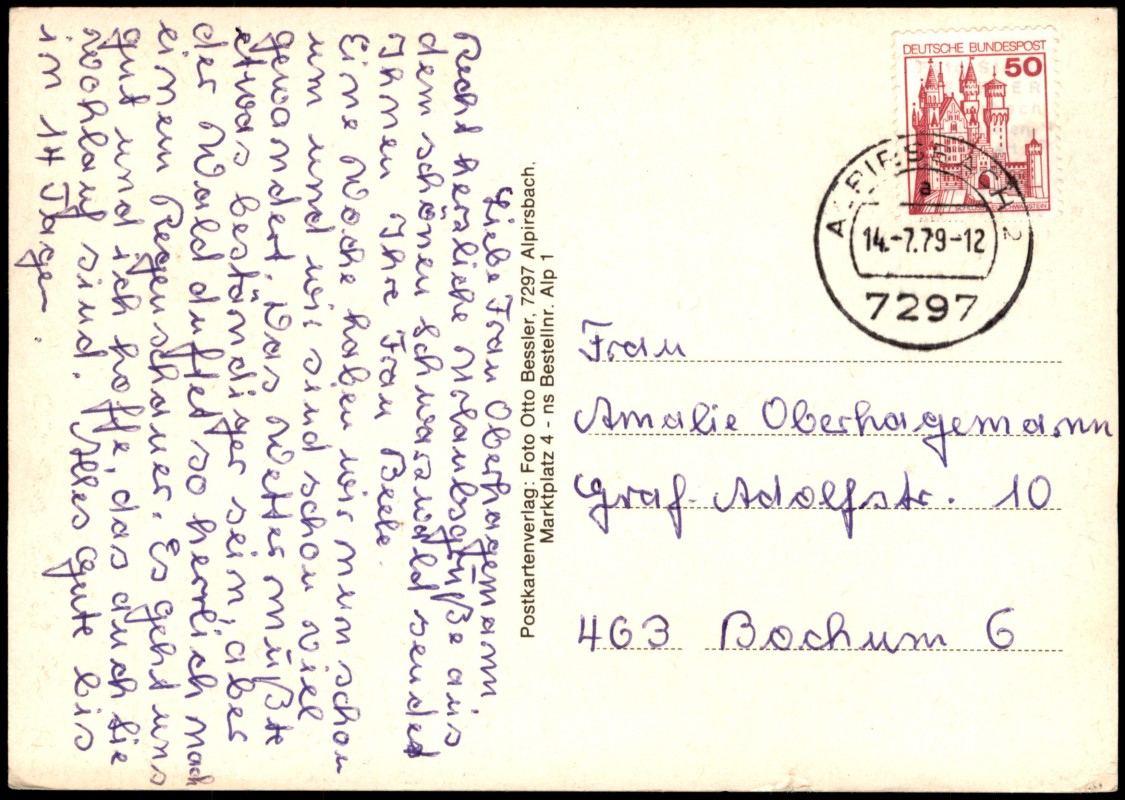 Liebe Frau Oberhagemann
Recht herzliche Urlaubsgrüße aus
dem schönen Schwarzwald sendet
Ihnen Ihre Frau
Eine Woche haben wir nun schon
um und wir sind schon viel
gewandert. Das Wetter müßte
etwas beständiger sein, aber
der Wald duftet so herrlich nach
einem Regenschauer. Es geht uns
gut und ich hoffe, das auch Sie
wohlauf sind. Alles gute bis
in 14 Tagen.
Postkartenverlag: Foto Otto Bessler, 7297 Alpirsbach,
Marktplatz 4 - ns Bestellnr. Alp 1
DEUTSCHE BUNDESPOST
50
ALPIRSBACH 2
a
14.-7.79-12
7297
Frau
Amalie Oberhagemann
Graf-Adolfstr. 10
463 Bochum 6